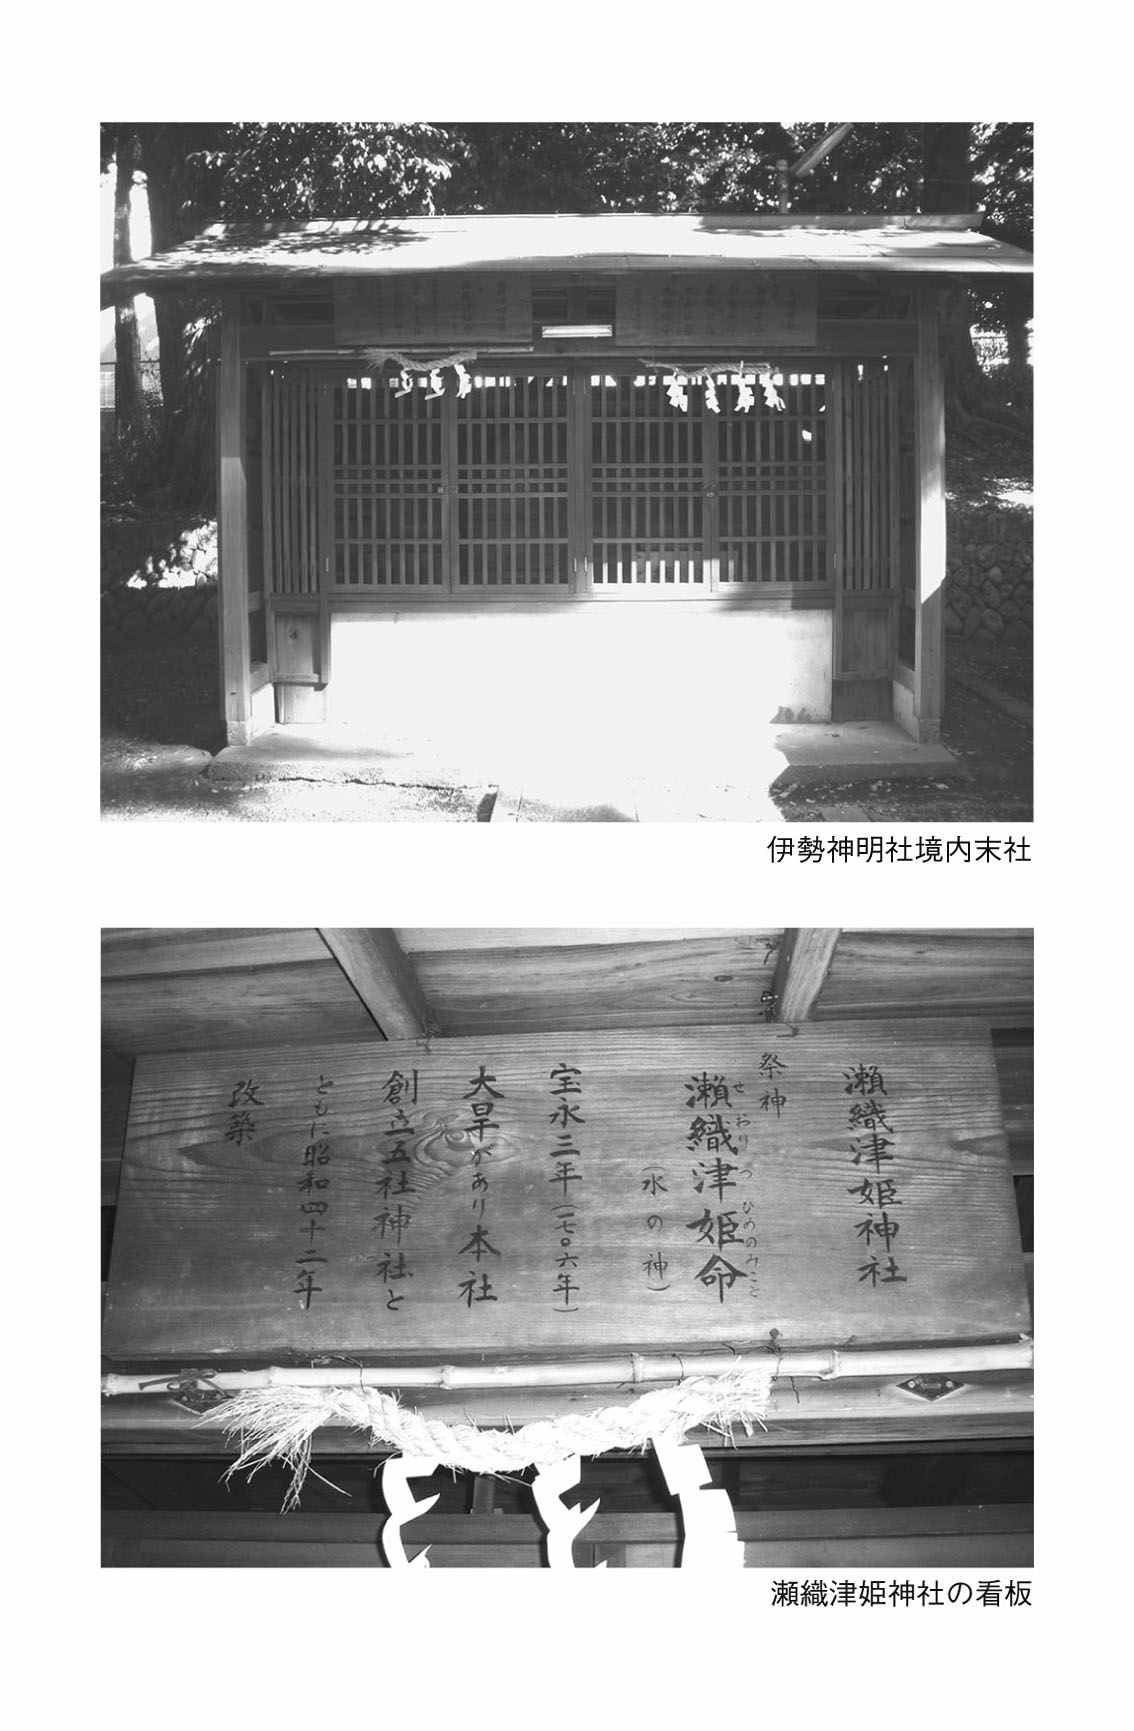 伊勢神明社境内末社
瀬織津姫神社
祭神
瀬織津姫命
せおりつひめのみこと
(水の神)
宝永三年(一七〇六年)
大旱があり本社
創立五社神社と
ともに昭和四十二年
改築
瀬織津姫神社の看板